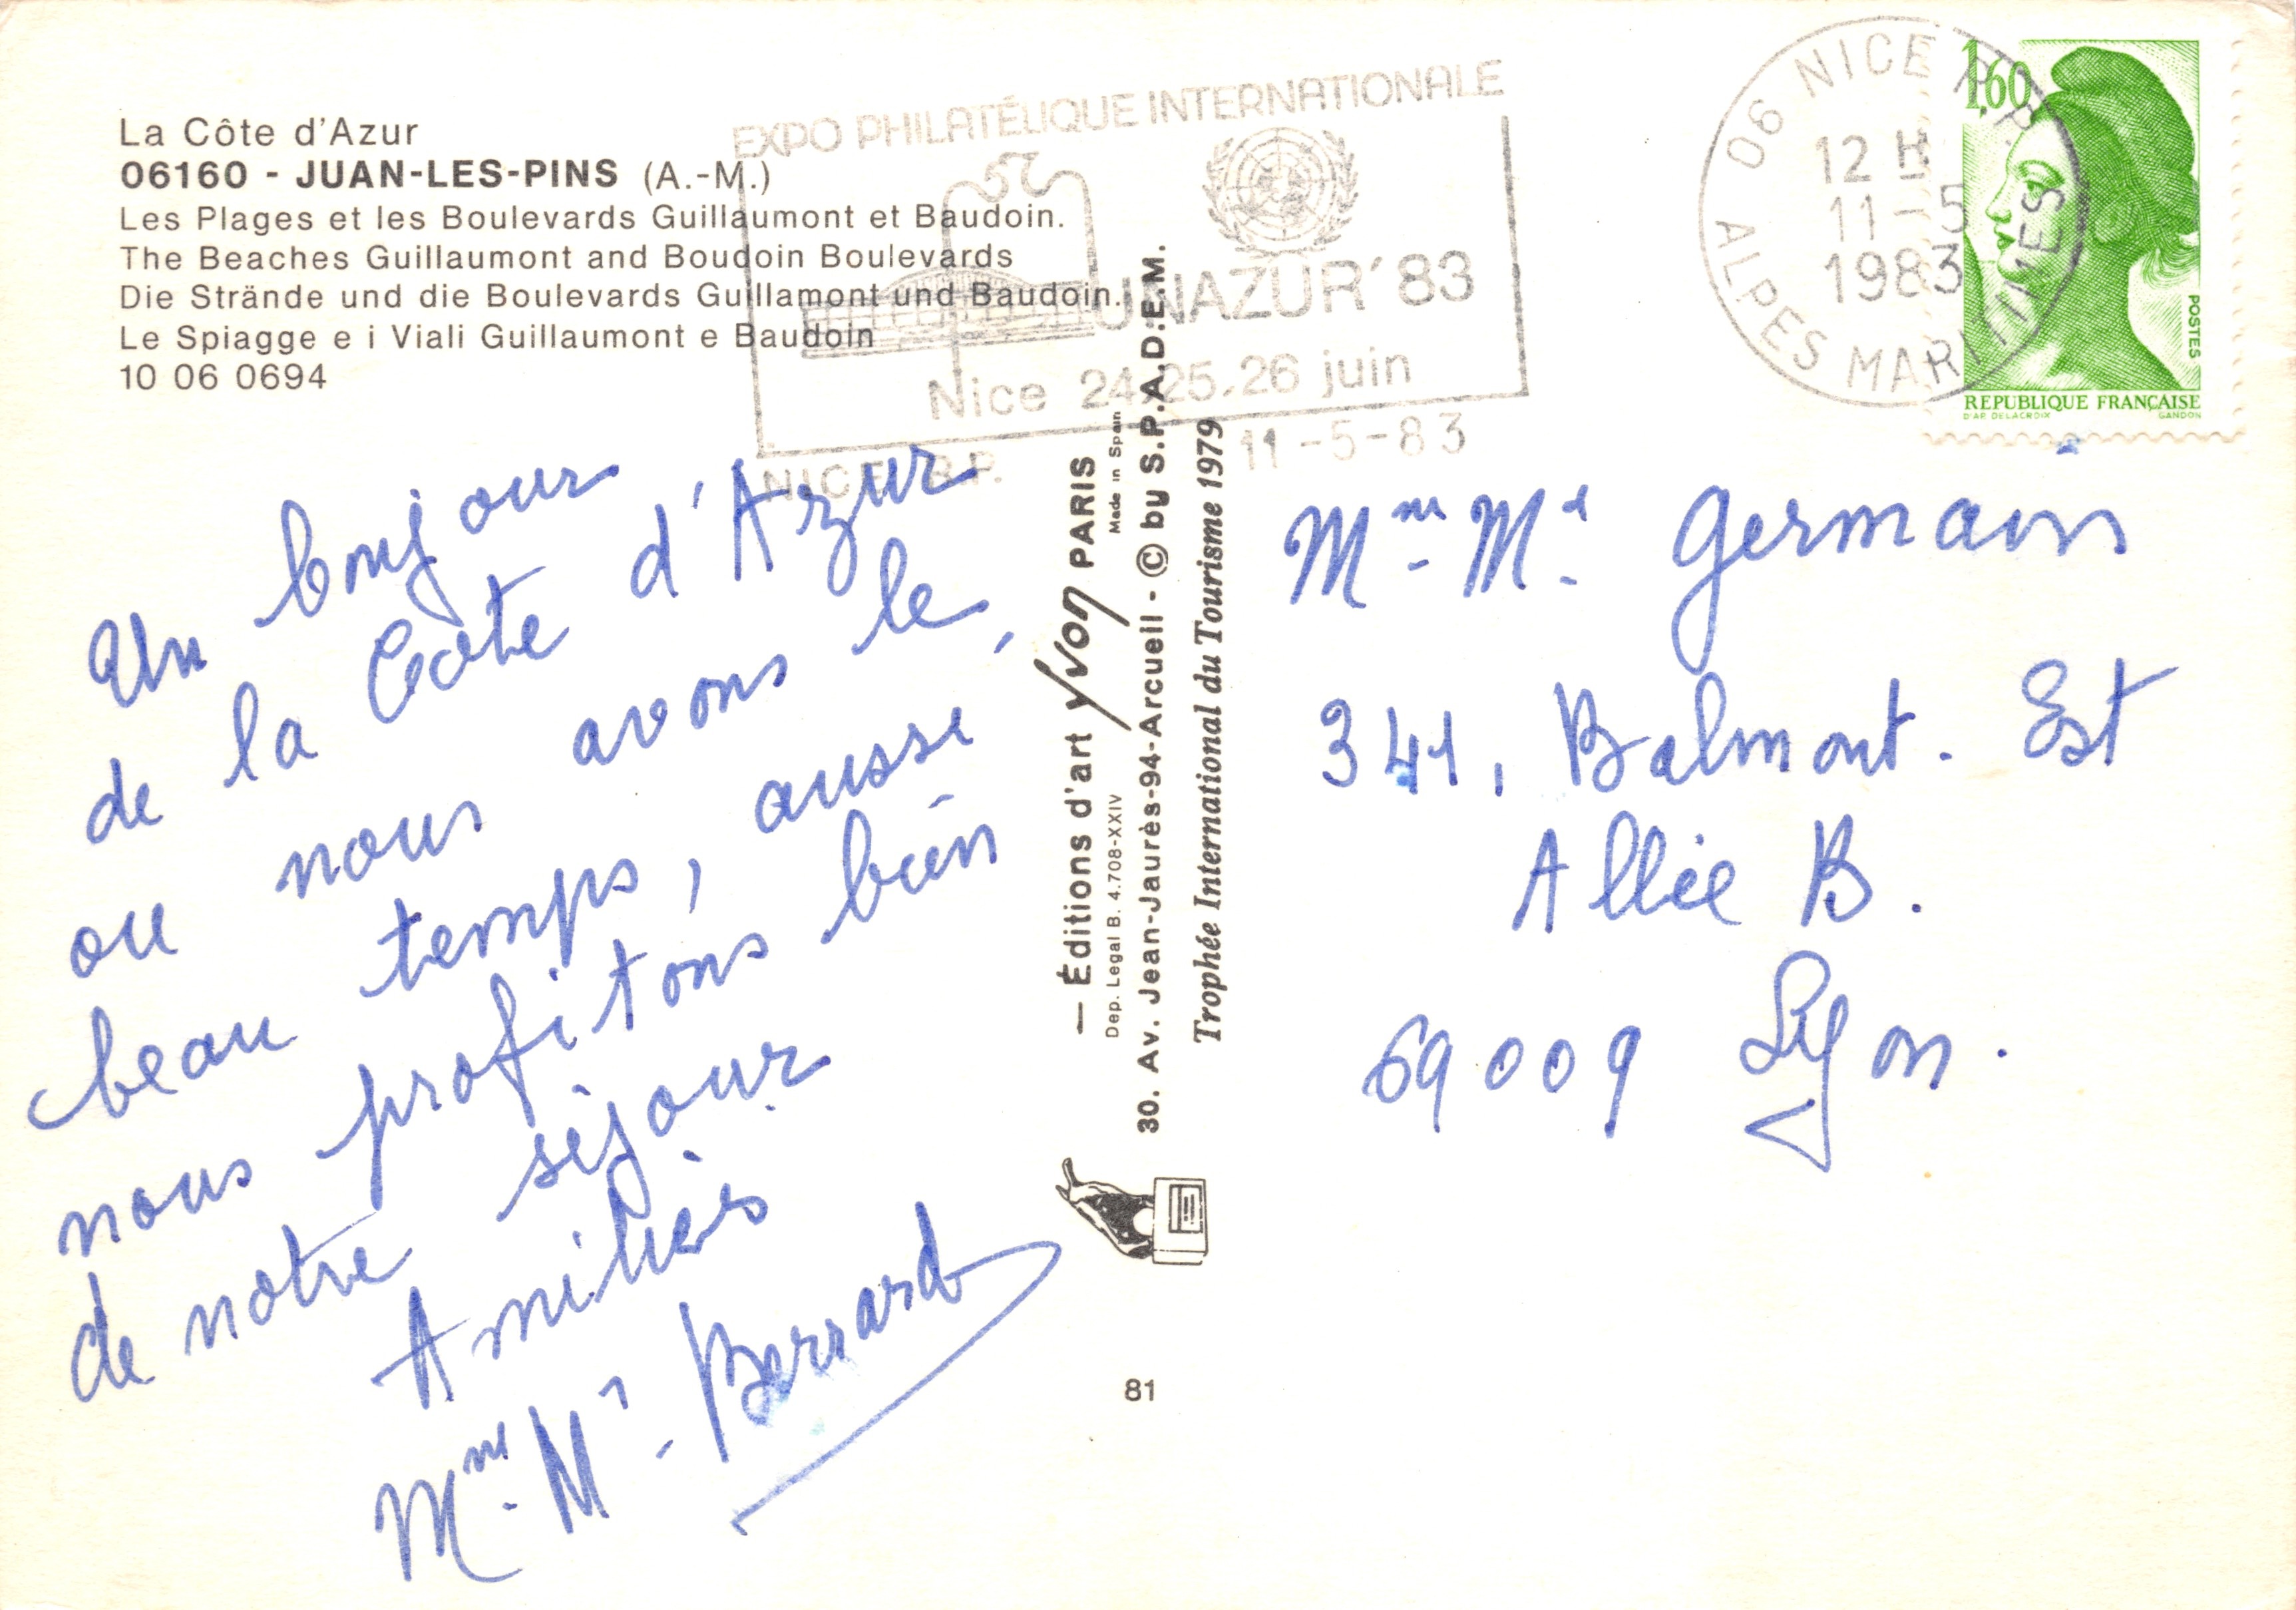 La Côte d'Azur
06160 - JUAN-LES-PINS (A.-M.)
Les Plages et les Boulevards Guillaumont et Baudoin.
The Beaches Guillaumont and Boudoin Boulevards
Die Strände und die Boulevards Guillamont und Baudoin.
Le Spiagge e i Viali Guillaumont e Baudoin
10 06 0694
EXPO PHILATÉLIQUE INTERNATIONALE
UNAZUR'83
Nice 24.25.26 juin
NICE R.P. 11-5-83
06 NICE R.P.
12 H
11-5
1983
ALPES MARITIMES
1,60
POSTES
REPUBLIQUE FRANÇAISE
D'AP. DELACROIX GANDON
Un bonjour
de la Cote d'Azur
ou nous avons le
beau temps, aussi
nous profitons bien
de notre séjour
Amitiés
Mme Mr Berrard
— Éditions d'art Yvon PARIS
Dep. Legal B. 4.708-XXIV Made in Spain
30. Av. Jean-Jaurès-94-Arcueil - © by S.P.A.D.E.M.
Trophée International du Tourisme 1979
81
Mme Mr Germain
341, Balmont. Est
Allée B.
69009 Lyon.